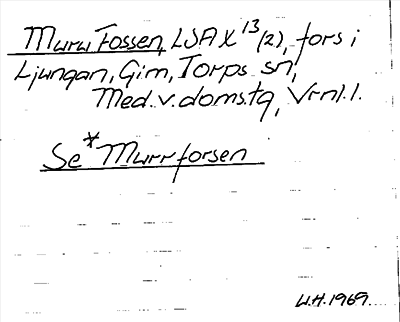 Murw Fossen, LSA X 13 (2), fors i
Ljungan, Gim, Torps sn,
Med. v. domstg, Vrnl. l.
Se *Murrforsen
W.H. 1969.